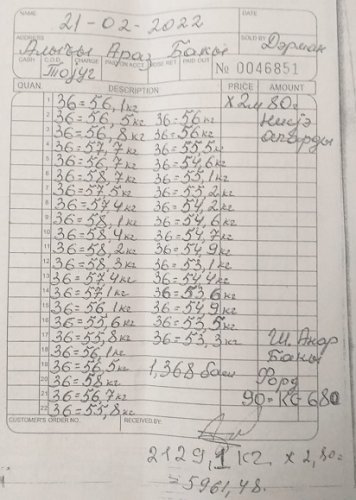 NAME 21-02-2022 DATE
ADDRESS Алыъчы Араз Бакы SOLD BY Дэрман
CASH C.O.D. CHARGE PAID ON ACCT. MDSE RET. PAID OUT № 0046851
Тоjуг
QUAN. DESCRIPTION PRICE AMOUNT
1 36=56,1кг х2м80г
2 36=56,5кг 36=56кг Нисjэ
3 36=56,8кг 36=56кг апарды
4 36=57,7кг 36=55,5кг
5 36=56,7кг 36=54,6кг
6 36=58,7кг 36=55,1кг
7 36=57,5кг 36=55,2кг
8 36=57,4кг 36=54,2кг
9 36=58,1кг 36=54,6кг
10 36=58,4кг 36=54,7кг
11 36=58,2кг 36=54,9кг
12 36=58,3кг 36=53,1кг
13 36=57,4кг 36=54,4кг
14 36=57,1кг 36=53,6кг
15 36=56,1кг 36=54,9кг
16 36=55,6кг 36=53,5кг
17 36=55,8кг 36=53,3кг Ш. Анар
18 36=56,1кг Бакы
19 36=56,5кг 1,368баш Форд
20 36=58кг
21 36=56,7кг 90-KG-680
22 36=55,8кг
CUSTOMER'S ORDER NO. RECEIVED BY
2129,1кг х2,80г
=5961,48.